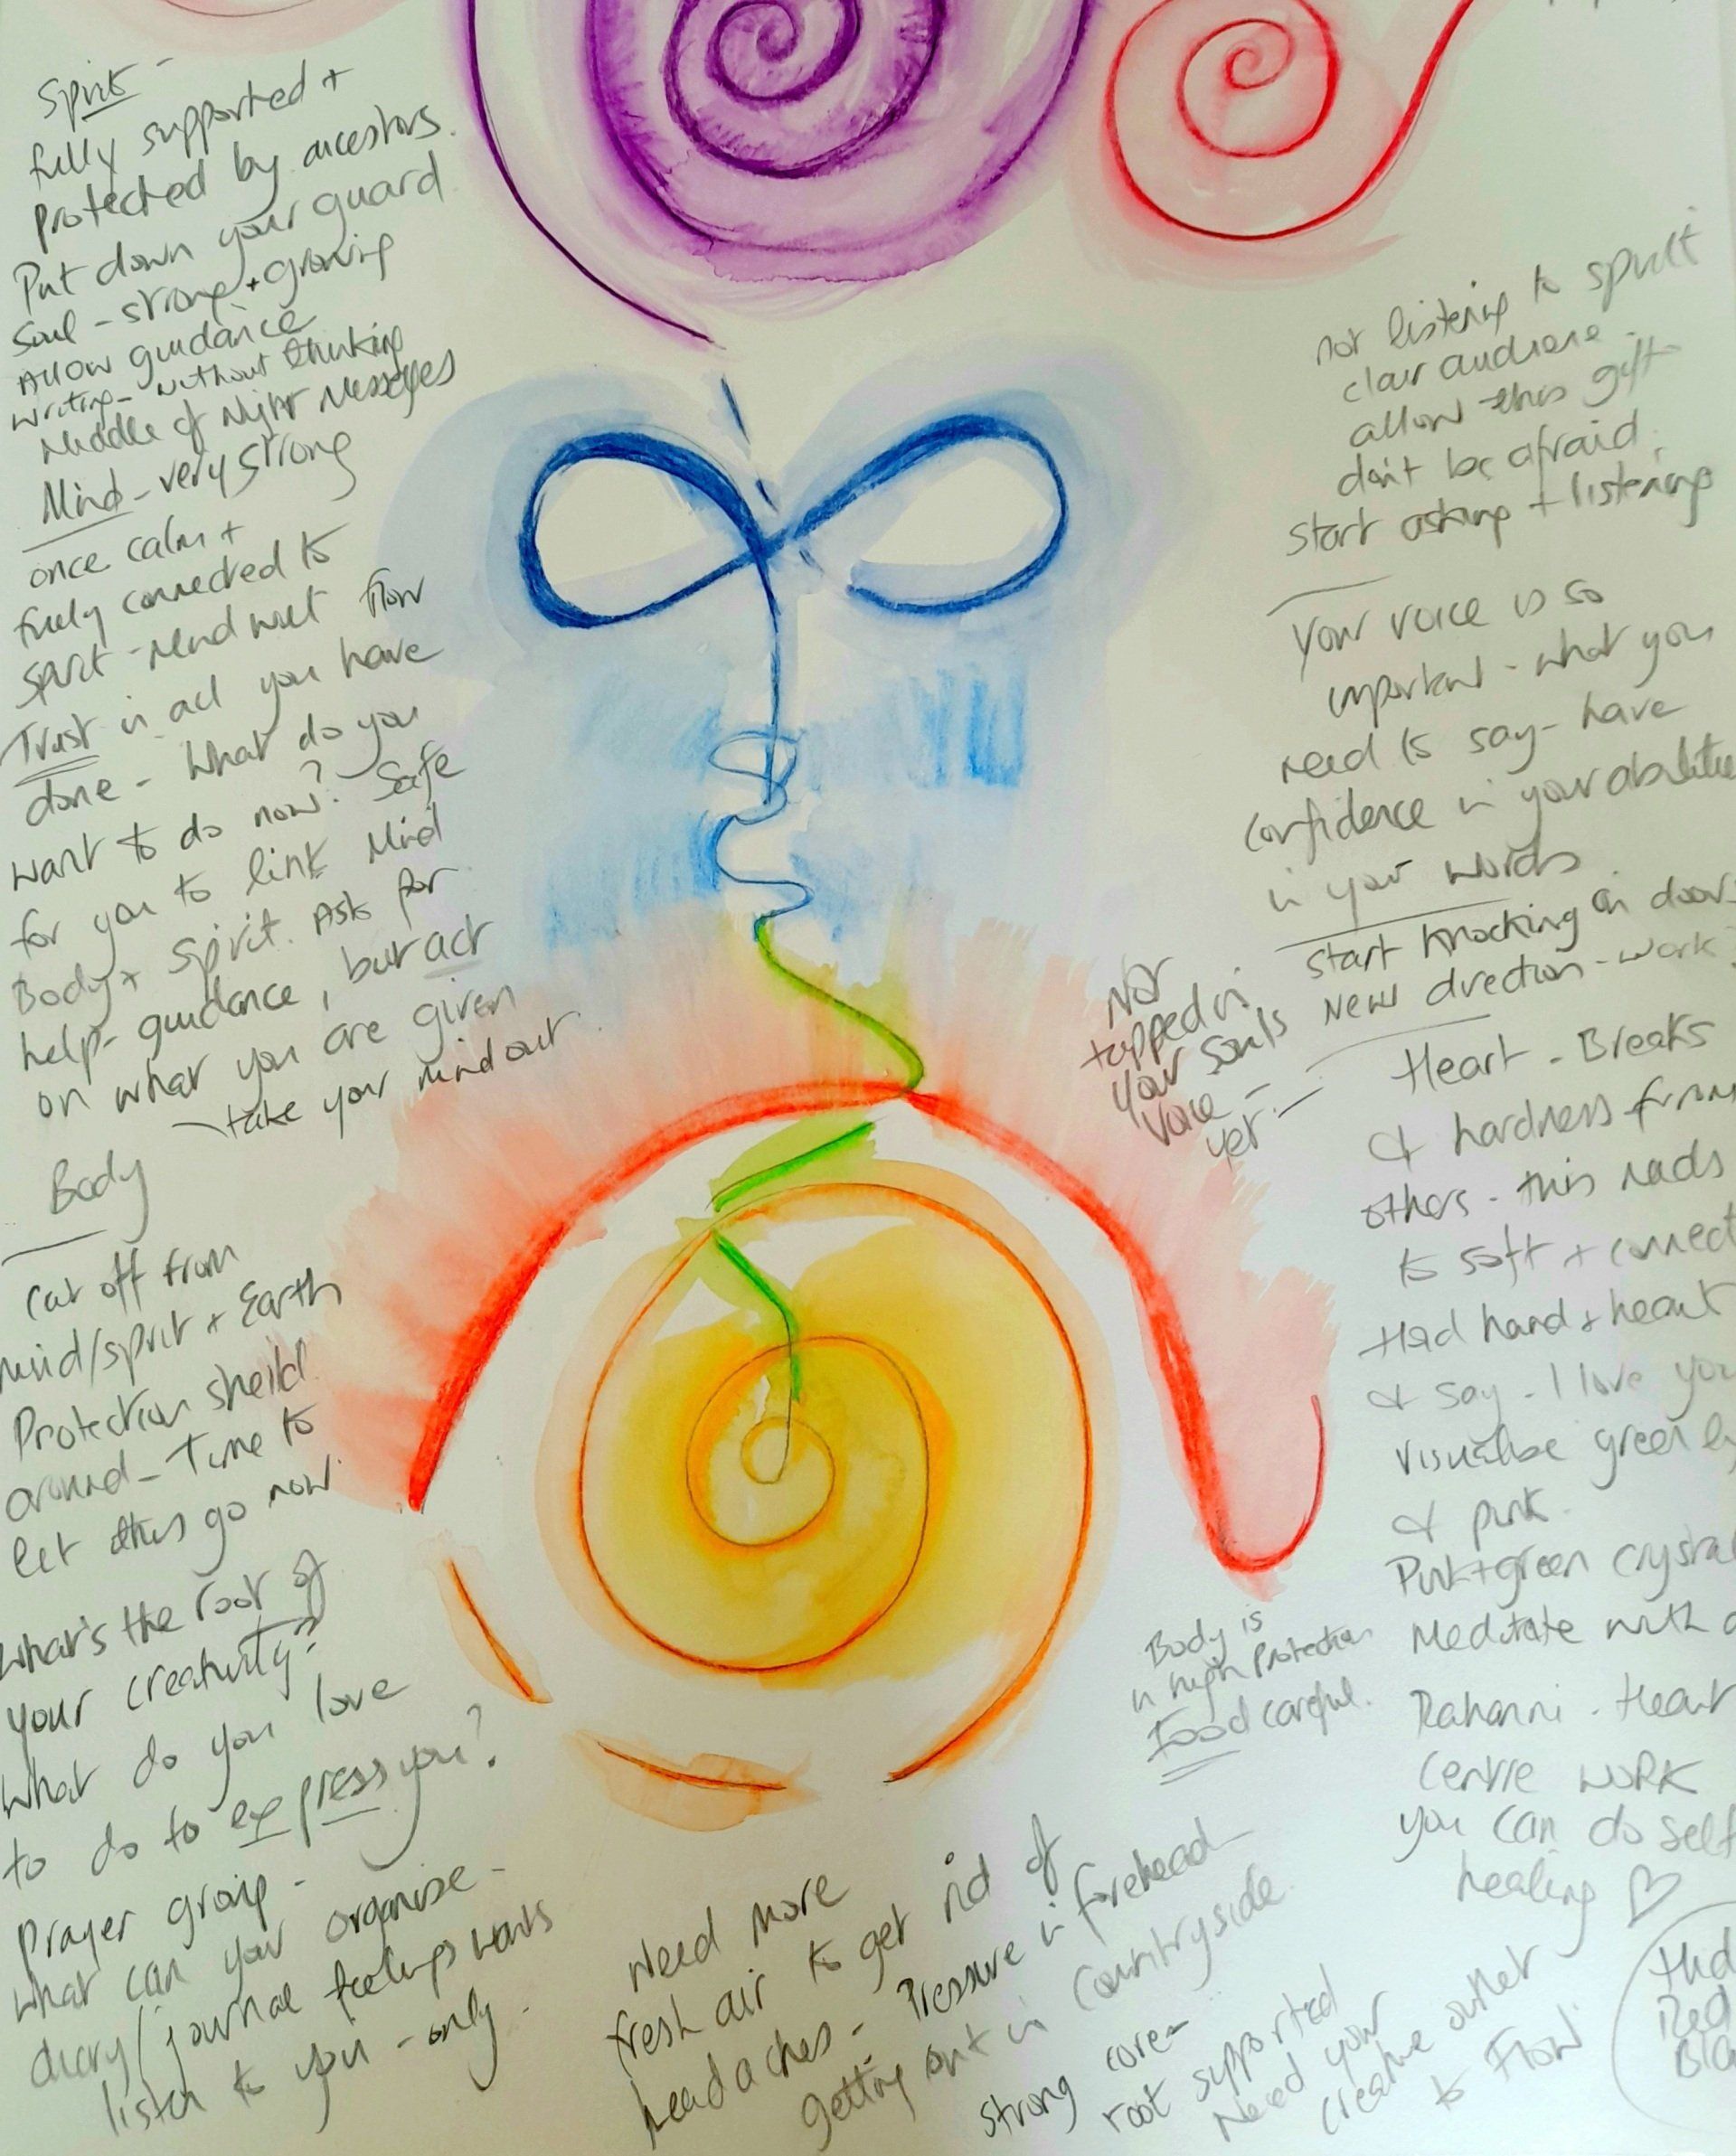 Spirit -
fully supported +
protected by ancestors.
Put down your guard
Soul - strong + growing
Allow guidance
writing - without thinking
Middle of Night Messages
Mind - very strong
once calm +
fully connected to
spirit - mind will flow
Trust in all you have
done - What do you
want to do now? Safe
for you to link Mind
Body + Spirit. Ask for
help - guidance, but act
on what you are given
take your mind out
Body
Cut off from
mind/spirit + Earth
Protection sheild
around - Time to
let this go now
What's the root of
your creativity?
What do you love
to do to express you?
Prayer group -
What can you organise -
diary/journal feelings wants
listen to you - only.
not listening to spirit
clair audience -
allow this gift
don't be afraid.
start asking + listening
Your voice is so
important - what you
need to say - have
confidence in your abilities
in your words
start knocking on doors
New direction - work
Not
tapped in
your souls
voice -
yet
Heart - Breaks
& hardness from
others - this needs
to soft + connect
Hand + heart
& say - I love you
visualise green
& pink.
Pink + green crystal
Meditate with
Body is
in high protection
Food careful.
Rahanni - Heart
Centre work
you can do self
healing
Need more
fresh air to get rid of
headaches - Pressure in forehead
getting out in countryside
strong core -
root supported
Need your
creative outlet
to Flow
Red